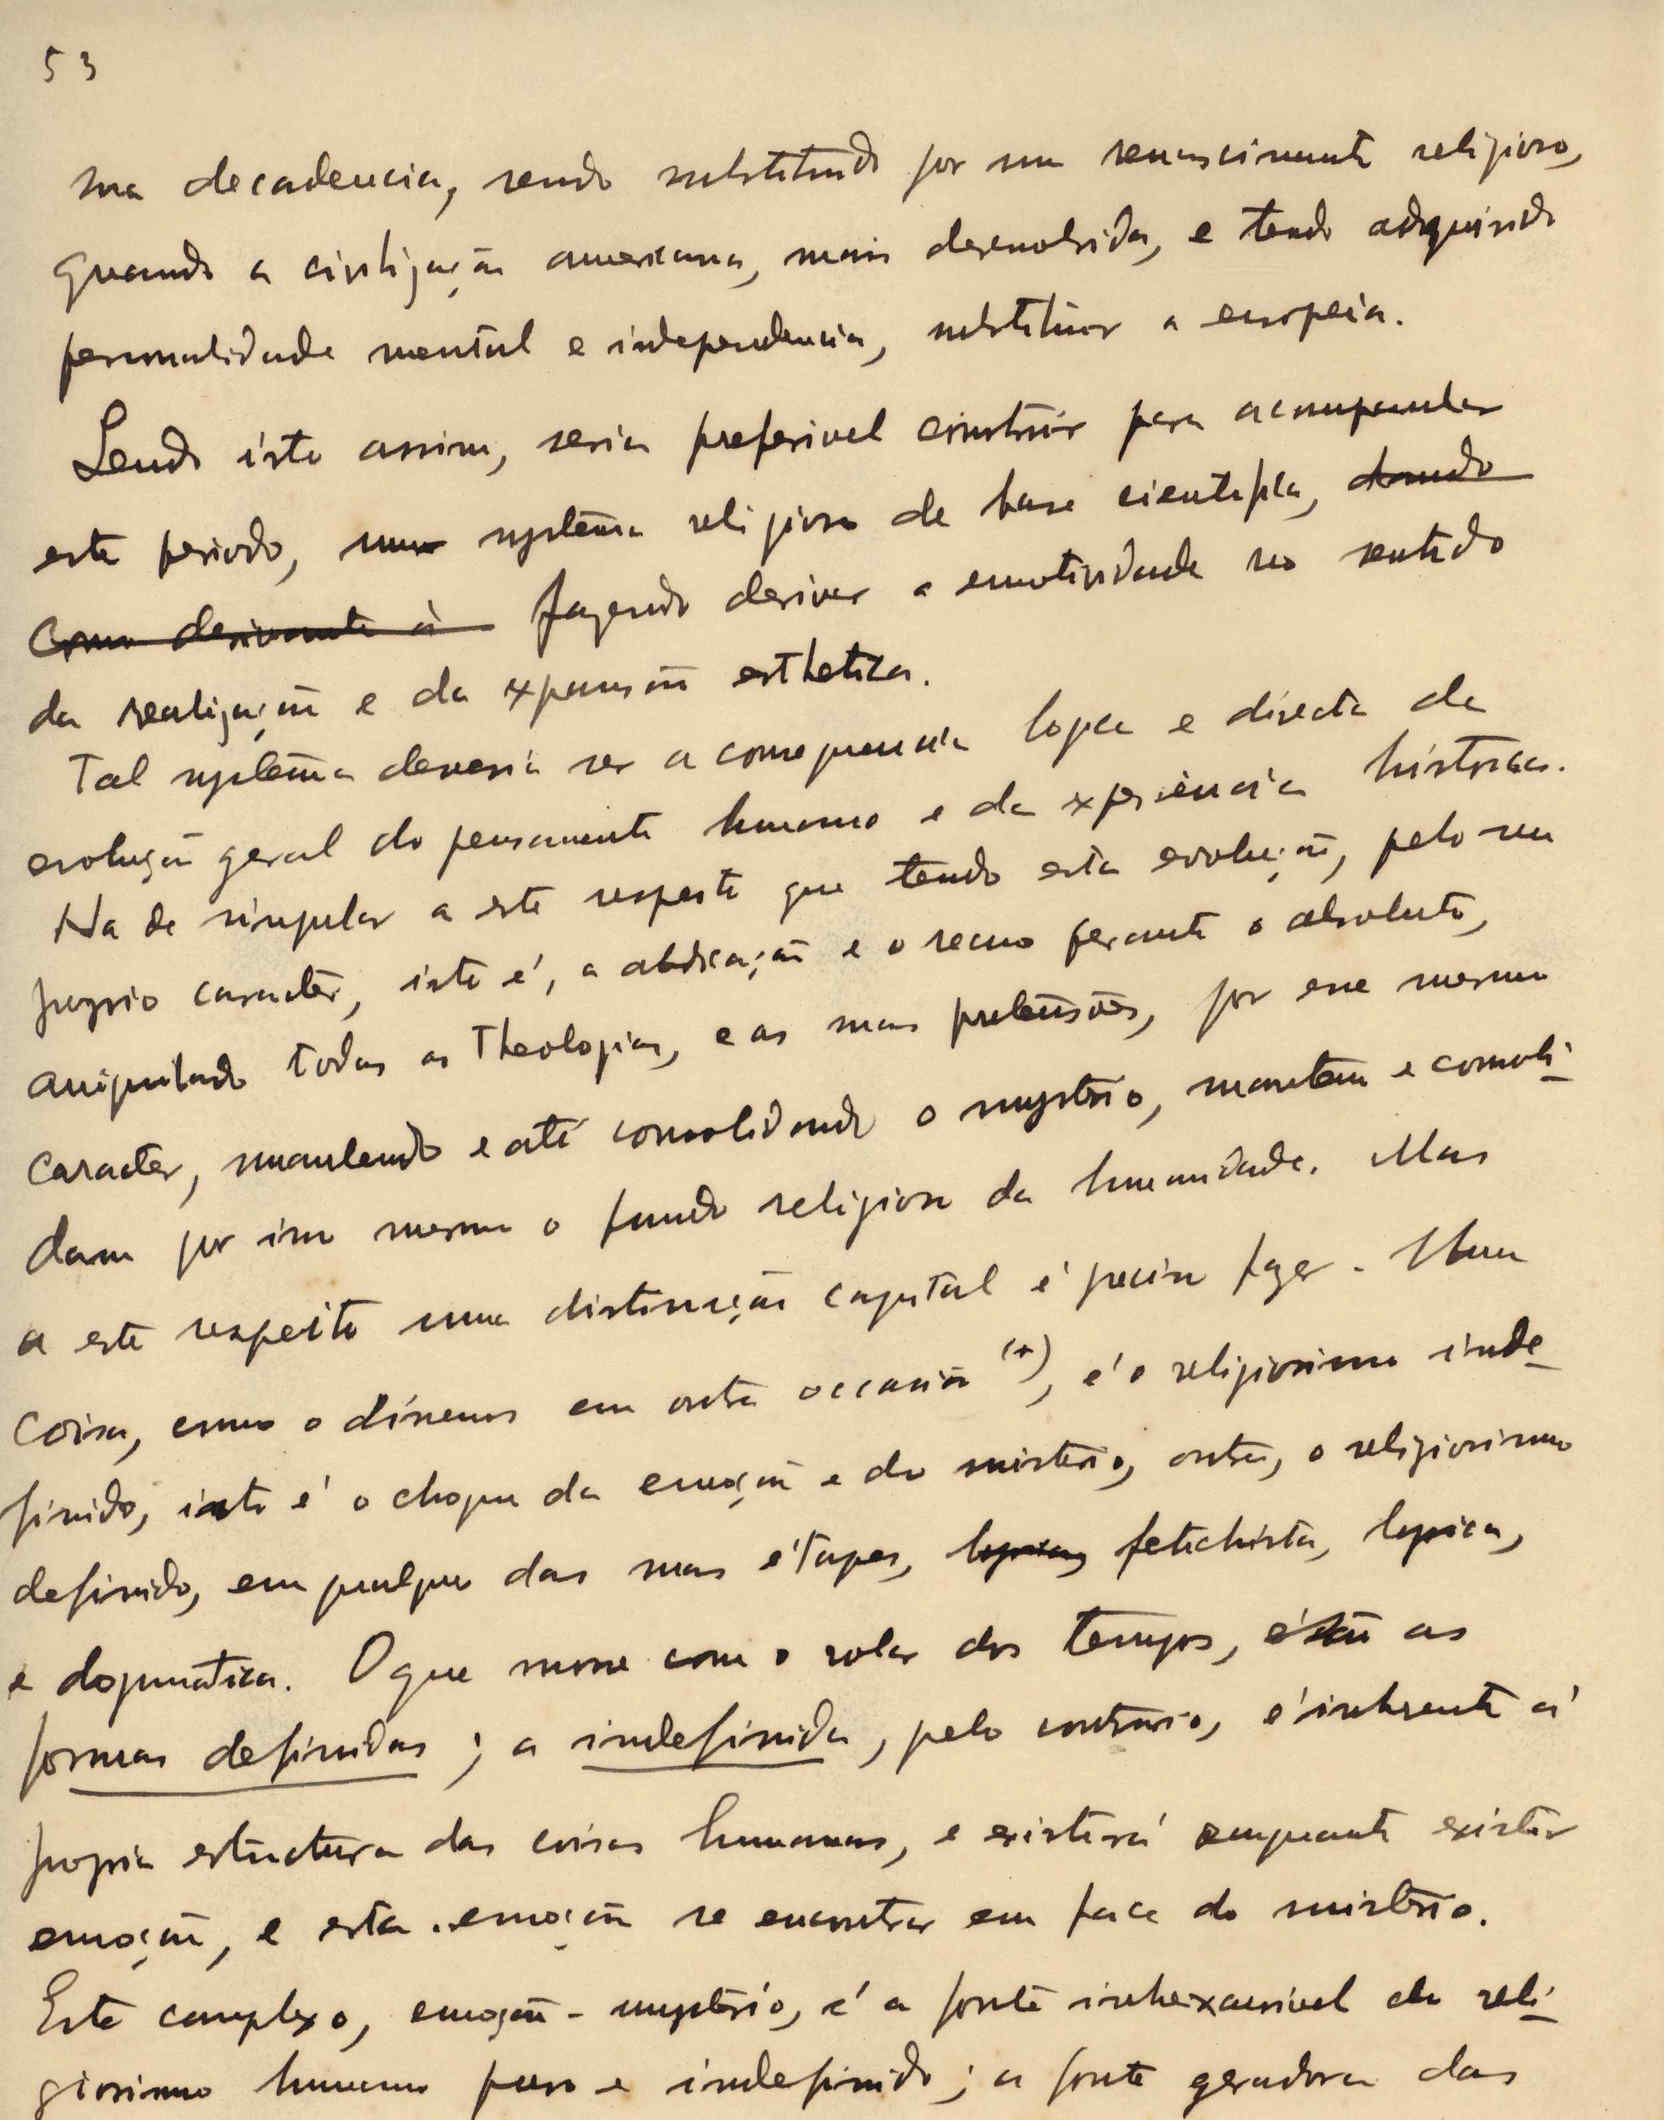 53
sua decadencia, sendo substituido por um renascimento religioso,
quando a civilização americana, mais desenvolvida, e tendo adquirido
personalidade mental e independencia, substituir a europeia.
Sendo isto assim, seria preferivel construir para acompanhar
este periodo, um systema religioso de base cientifica, dando
como derivante à fazendo derivar a emotividade no sentido
da realização e da expansão esthetica.
Tal systema deveria ser a consequencia logica e directa da
evolução geral do pensamento humano e da experiencia historica.
Ha de singular a este respeito que tendo esta evolução, pelo seu
proprio caracter, isto é, a abdicação e o recuo perante o absoluto,
aniquilado todas as Theologias, e as suas pretensões, por esse mesmo
caracter, mantendo e até consolidando o mysterio, mantem e consoli-
dam por isso mesmo o fundo religioso da humanidade. Mas
a este respeito uma distincção capital é preciso fazer. Uma
coisa, como o dissemos em outra occasião (*), é o religiosismo inde-
finido, isto é o choque da emoção e do misterio, outra, o religiosismo
definido, em qualquer das suas étapes, logica, fetichista, logica,
e dogmatica. O que morre com o rolar dos tempos, são as
formas definidas; a indefinida, pelo contrario, é inherente á
propria estructura das coisas humanas, e existirá enquanto existir
emoção, e esta emoção se encontrar em face do misterio.
Este complexo, emoção-mysterio, é a fonte inhexaurivel do reli-
giosismo humano puro e indefinido; a fonte geradora das